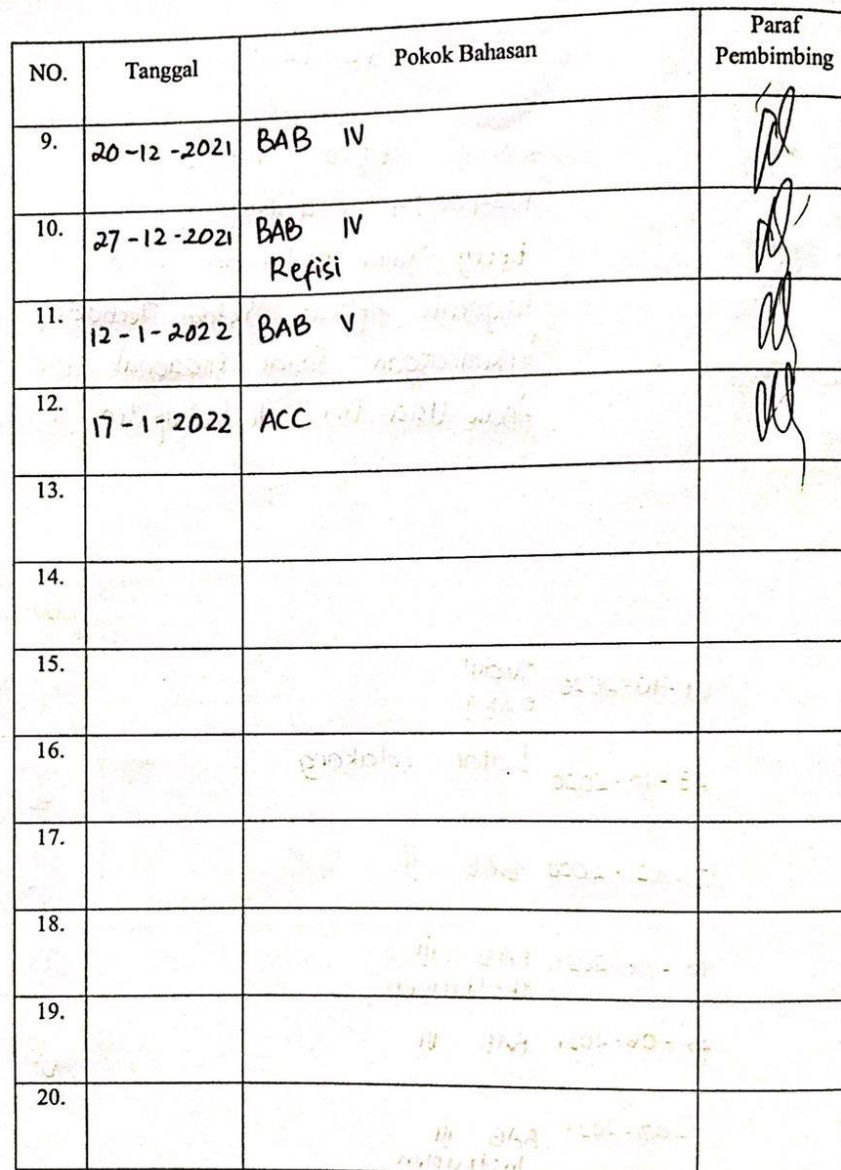 NO. Tanggal Pokok Bahasan Paraf Pembimbing
9. 20-12-2021 BAB IV
10. 27-12-2021 BAB IV
Refisi
11. 12-1-2022 BAB V
12. 17-1-2022 ACC
13.
14.
15.
16.
17.
18.
19.
20.